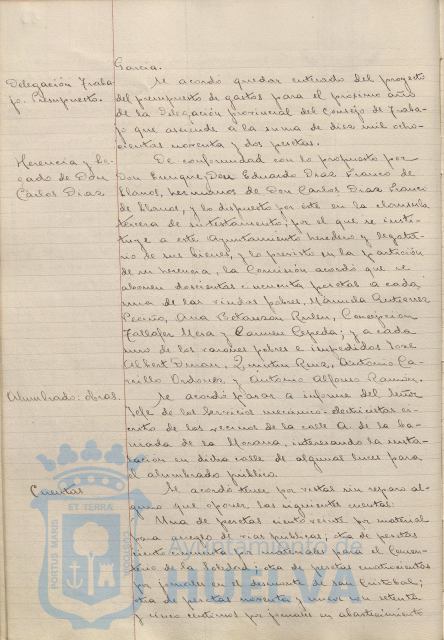 García.
Delegación Traba-
jo. Presupuesto.
Se acordó quedar enterado del proyecto
del presupuesto de gastos para el próximo año
de la Delegación provincial del Consejo de Traba-
jo que asciende á la suma de diez mil ocho-
cientas noventa y dos pesetas.
Herencia y le-
gado de Don
Carlos Diaz
De conformidad con lo propuesto por
Don Enrique, Don Eduardo Diaz Franco de
Llanos, hermanos de Don Carlos Diaz Franco
de Llanos, y lo dispuesto por éste en la cláusula
tercera de su testamento, por el que se insti-
tuye a este Ayuntamiento heredero y legata-
rio de sus bienes, y lo previsto en la partición
de su herencia, la Comisión acordó que se
abonen doscientas cincuenta pesetas a cada
una de las viudas pobres, Manuela Gutierrez
Peciño, Ana Betanzon Rulen, Concepcion
Tallafer Mera y Carmen Cepeda; y a cada
uno de los varones pobres e impedidos José
Albert Duran, Quintin Ruiz, Antonio Ca-
rrillo Ordoñez y Antonio Alfonso Ramón.
Alumbrado: obras.
Se acordó pasar a informe del Señor
Jefe de los Servicios mecánico-electricistas es-
crito de los vecinos de la calle A. de la ba-
rriada de la Morana, interesando la insta-
lación en dicha calle de algunas luces para
el alumbrado público.
Cuentas
Se acordó tener por vistas sin reparo al-
guno que oponer, las siguientes cuentas:
Una de pesetas ciento veinte por material
para arreglo de vias publicas; otra de pesetas
ciento cincuenta por materiales para el Cemen-
terio de la Soledad; otra de pesetas cuatrocientas
por jornales en el desmonte de San Cristobal;
otra de pesetas noventa y nueve con setenta
y cinco centimos por jornales en abastecimiento
PORTUS MARIS
ET TERRÆ
CUSTODIA
Ayuntamiento de
HUELVA